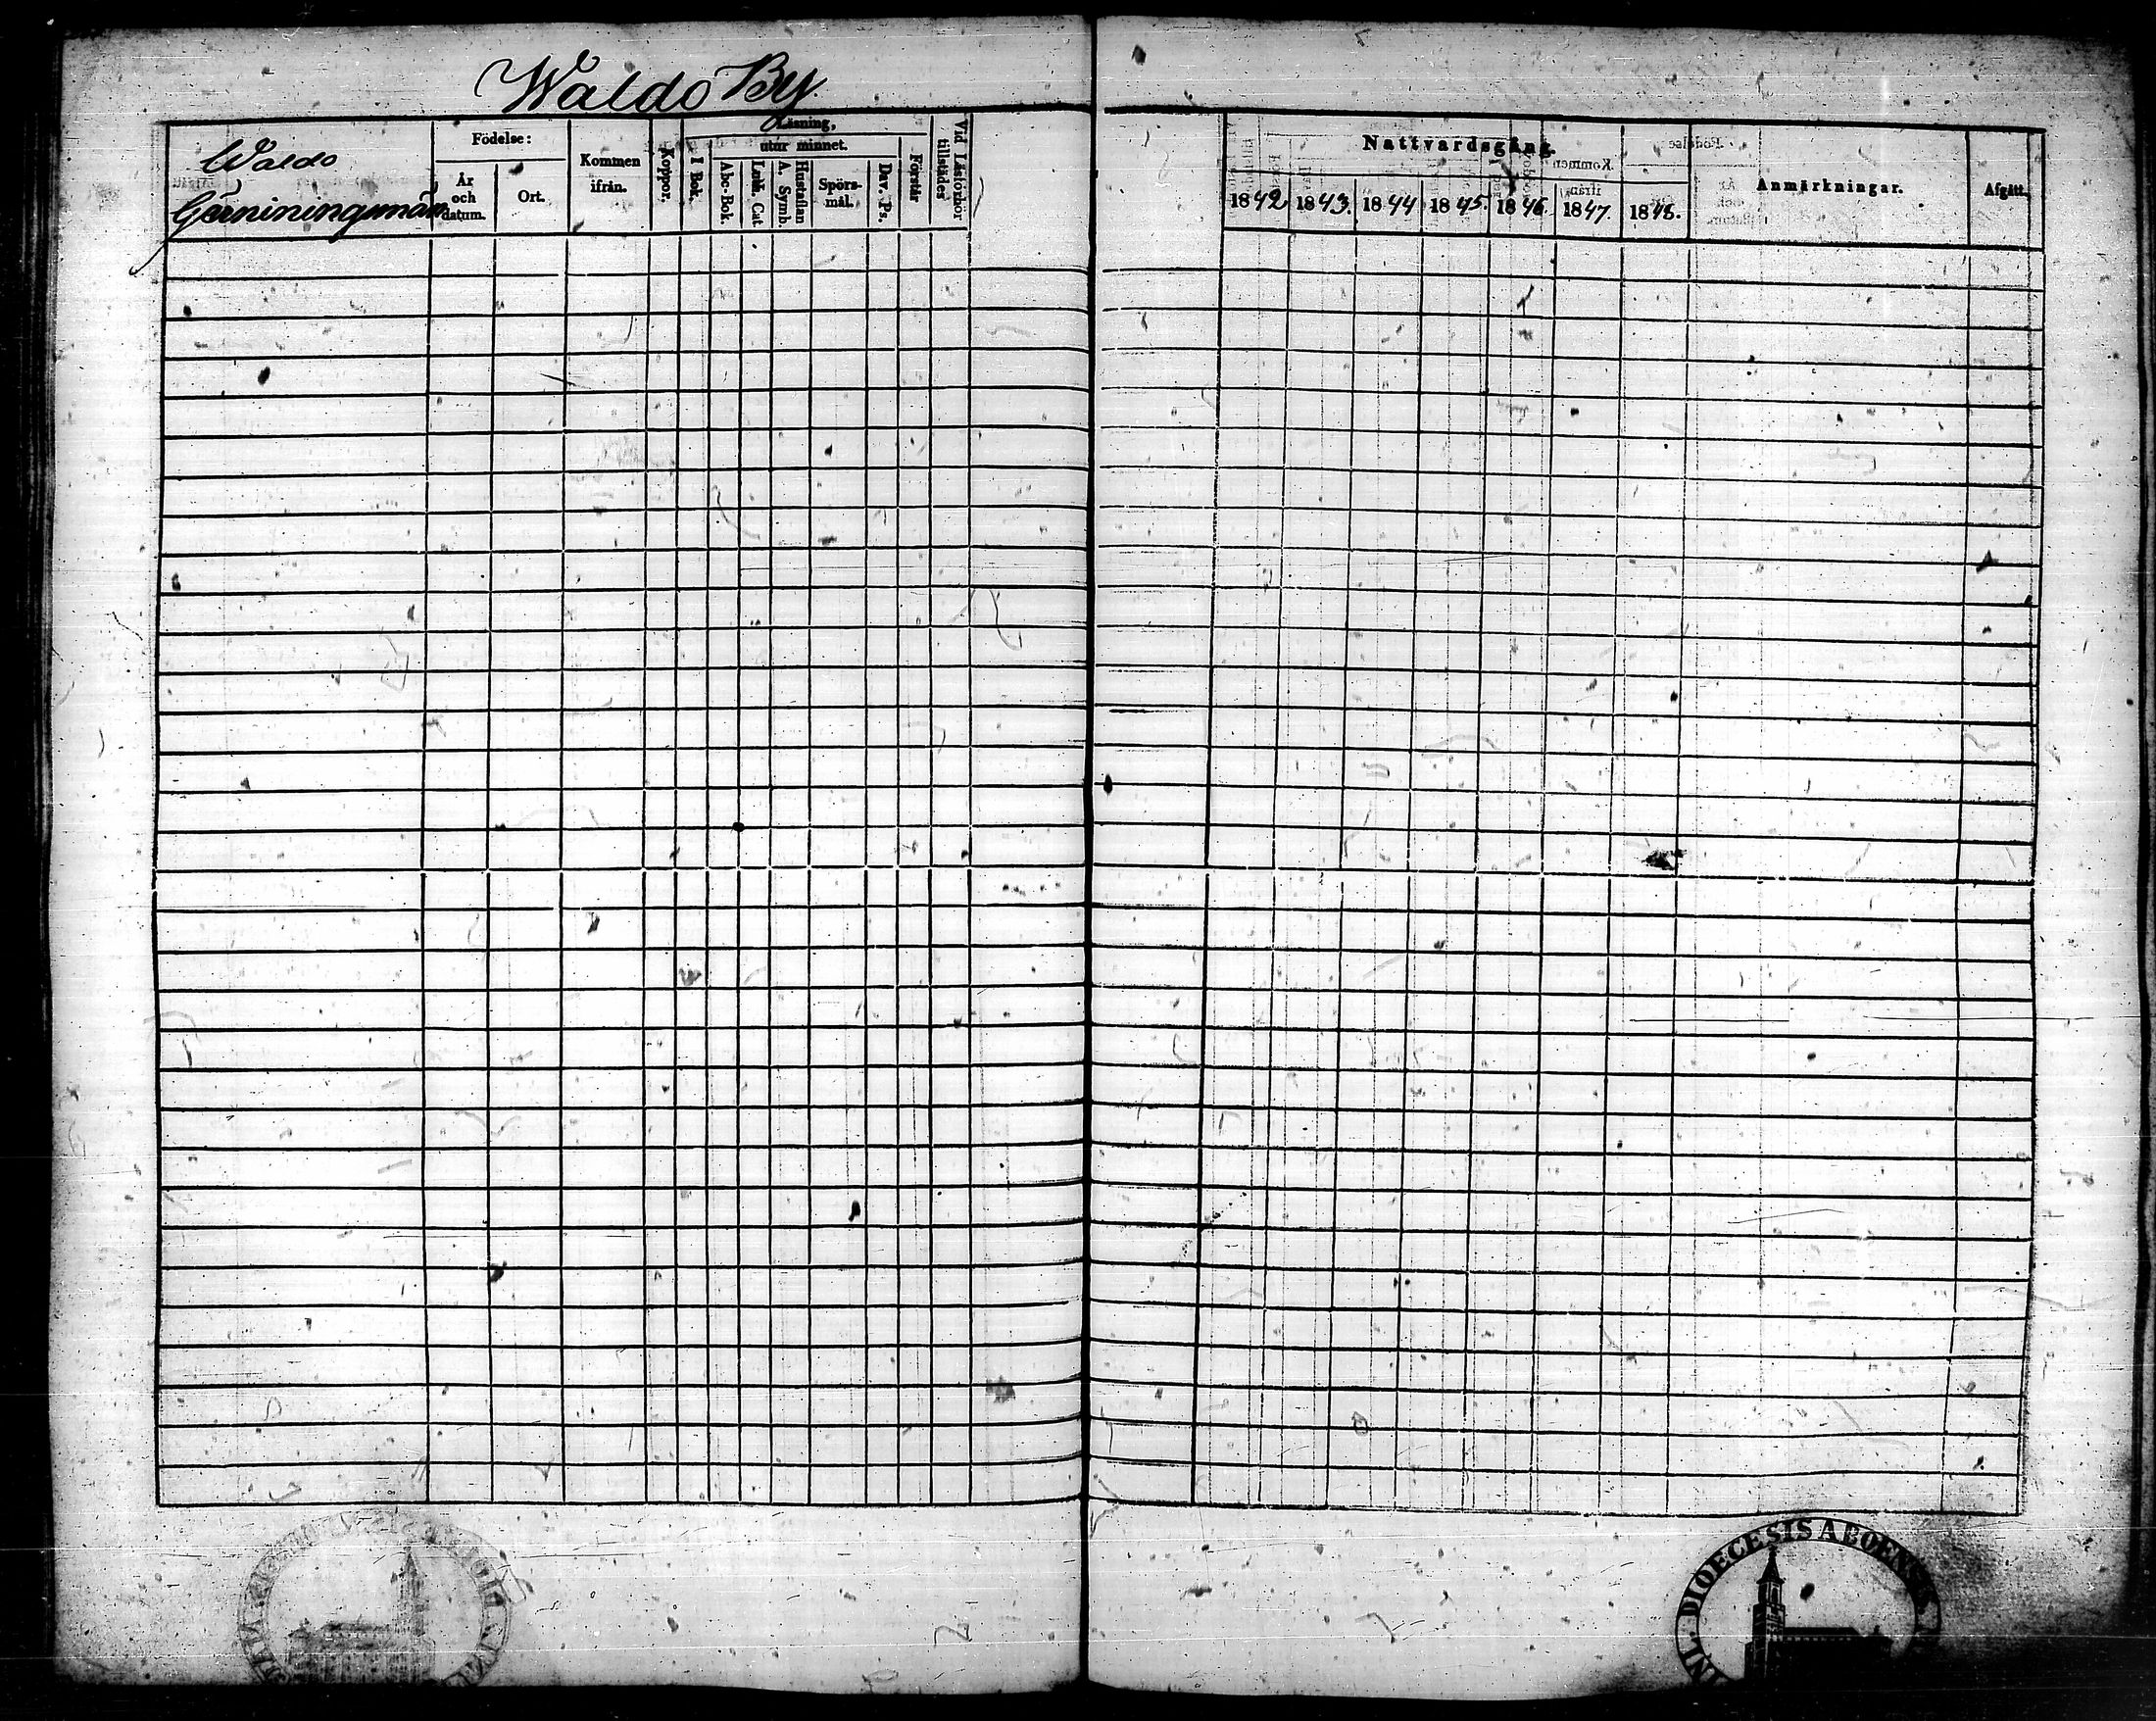 Waldo By
Waldo
Födelse:
År och datum.
Ort.
Kommen ifrån.
Koppor.
Läsning,
utur minnet.
I Bok.
Abc-Bok.
Luth. Cat.
A. Symb.
Hustaflan
Spörs-mål.
Dav. Ps.
Förstår
Vid Läsförhör tillstädes
Nattvardsgång.
1842
1843.
1844
1845.
1846.
1847.
1848.
Anmärkningar.
Afgått.
DIOECESIS ABOENSIS